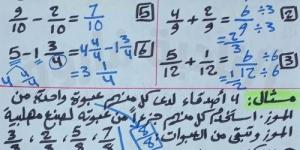 5  9/10 - 2/10 = 7/10
2  4/9 + 2/9 = 6/9 ÷3 ÷3 = 2/3
6  5 - 1 3/4 = 4 4/4 - 1 3/4 = 3 1/4
3  5/12 + 1/12 = 6/12 ÷6 ÷6
مثال: 4 أصدقاء لدى كل منهم عبوة واحدة من
الموز. استخدم كل منهم جزءاً من عبوته لصنع مهلبية
الموز وتبقى من العبوات 8/8
3/8 , 2/8 , 5/8 , 7/8